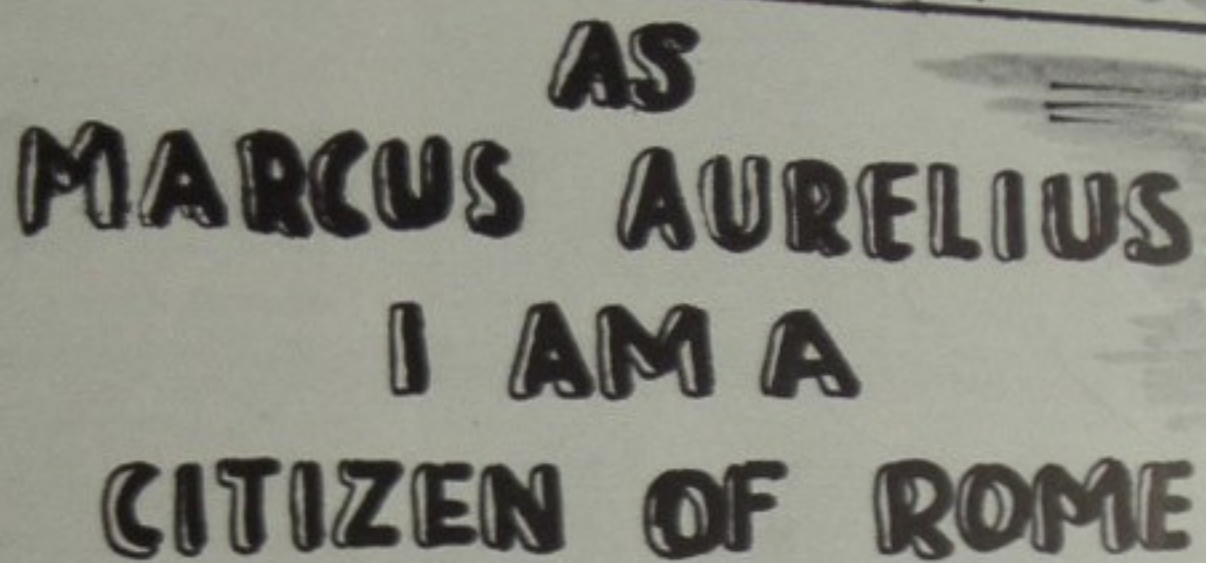 AS
MARCUS AURELIUS
I AM A
CITIZEN OF ROME